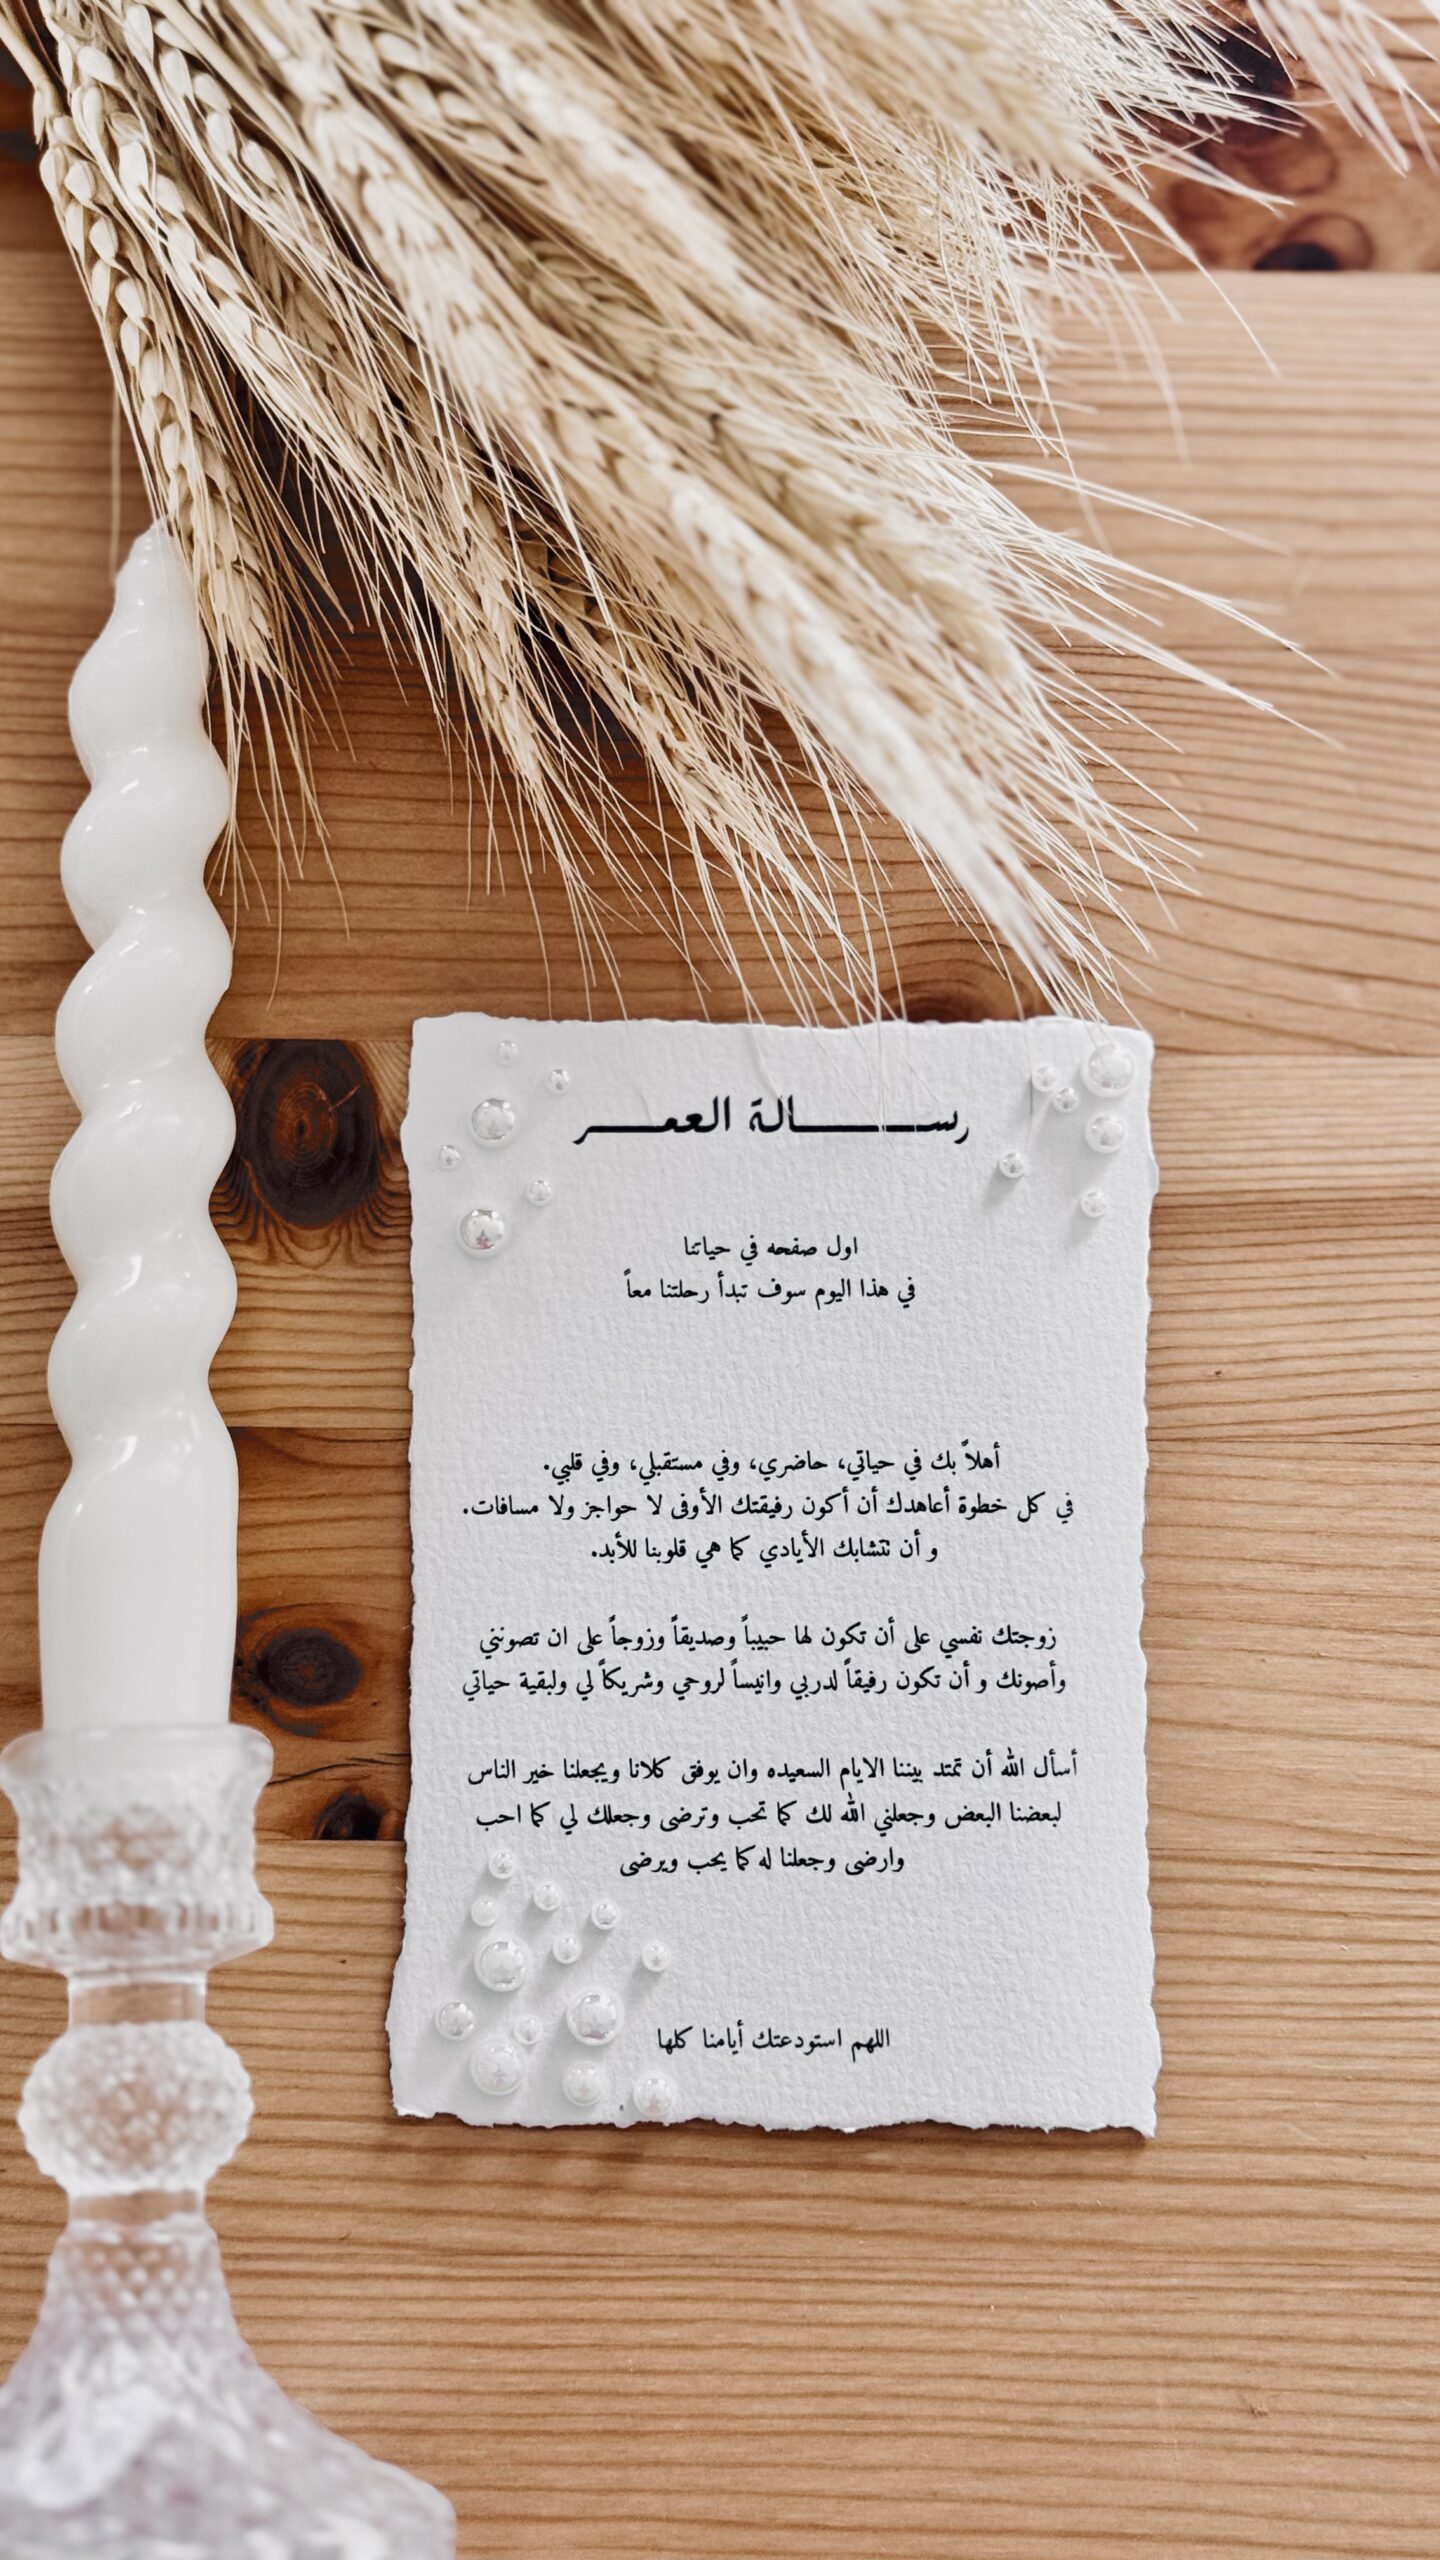 رسالة العمر
اول صفحه في حياتنا
في هذا اليوم سوف تبدأ رحلتنا معاً
أهلاً بك في حياتي، حاضري، وفي مستقبلي، وفي قلبي.
في كل خطوة أعاهدك أن أكون رفيقتك الأوفى لا حواجز ولا مسافات.
و أن نتشابك الأيادي كما هي قلوبنا للأبد.
زوجتك نفسي على أن تكون لها حبيباً وصديقاً وزوجاً على ان تصونني
وأصونك و أن تكون رفيقاً لدربي وانيساً لروحي وشريكاً لي ولبقية حياتي
أسأل الله أن تمتد بيننا الايام السعيده وان يوفق كلانا ويجعلنا خير الناس
لبعضنا البعض وجعلني الله لك كما تحب وترضى وجعلك لي كما احب
وارضى وجعلنا له كما يحب ويرضى
اللهم استودعتك أيامنا كلها